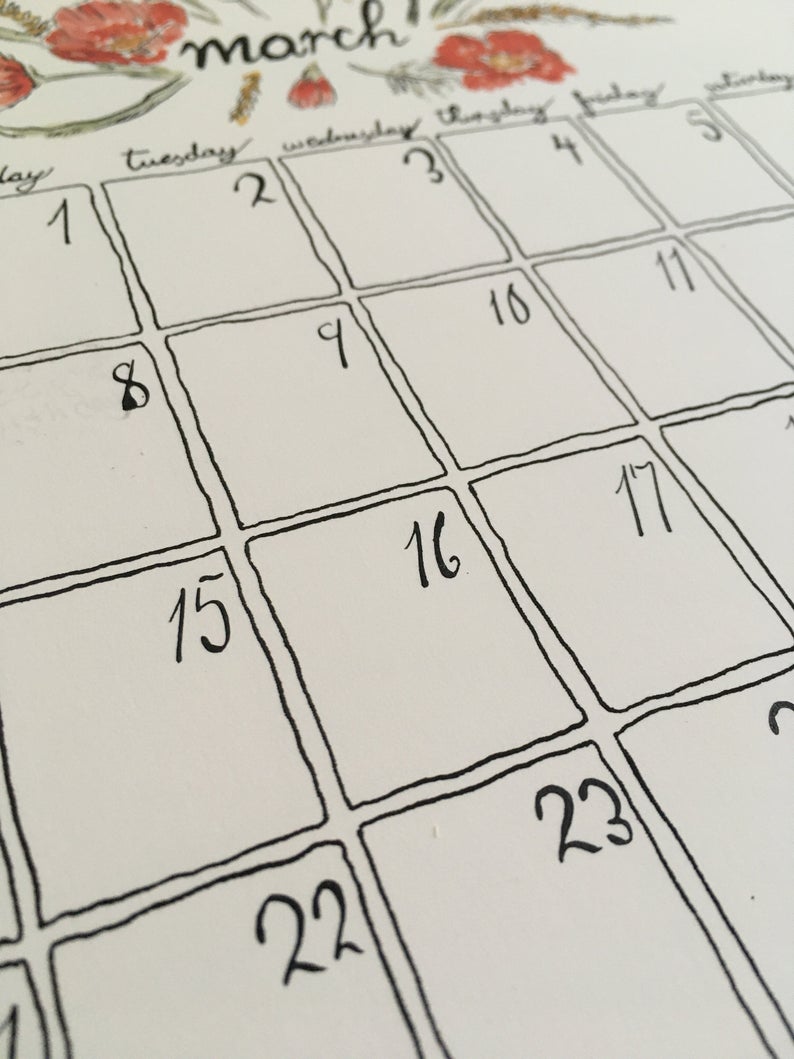 march
tuesday wednesday thursday friday saturday
1 2 3 4 5
8 9 10 11
15 16 17
22 23